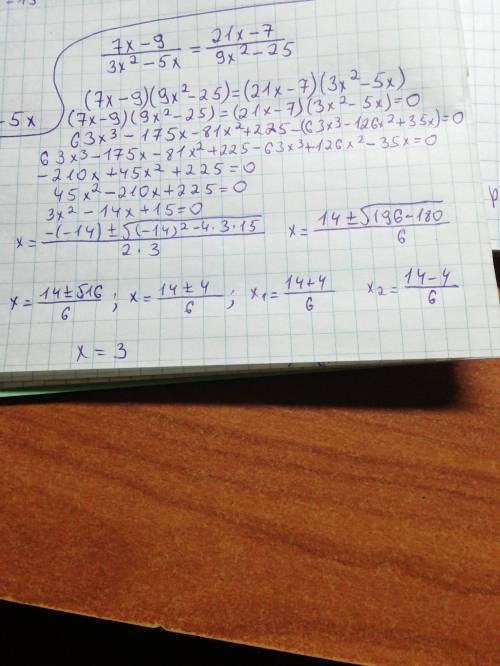 -5x
(7x-9)/(3x²-5x) = (21x-7)/(9x²-25)
(7x-9)(9x²-25)=(21x-7)(3x²-5x)
(7x-9)(9x²-25)=(21x-7)(3x²-5x)=0
63x³-175x-81x²+225-(63x³-126x²+35x)=0
63x³-175x-81x²+225-63x³+126x²-35x=0
-210x+45x²+225=0
45x²-210x+225=0
3x²-14x+15=0
x=(-(-14)±√((-14)²-4·3·15))/(2·3) x=(14±√(196-180))/6
x=(14±√16)/6; x=(14±4)/6; x₁=(14+4)/6 x₂=(14-4)/6
x=3